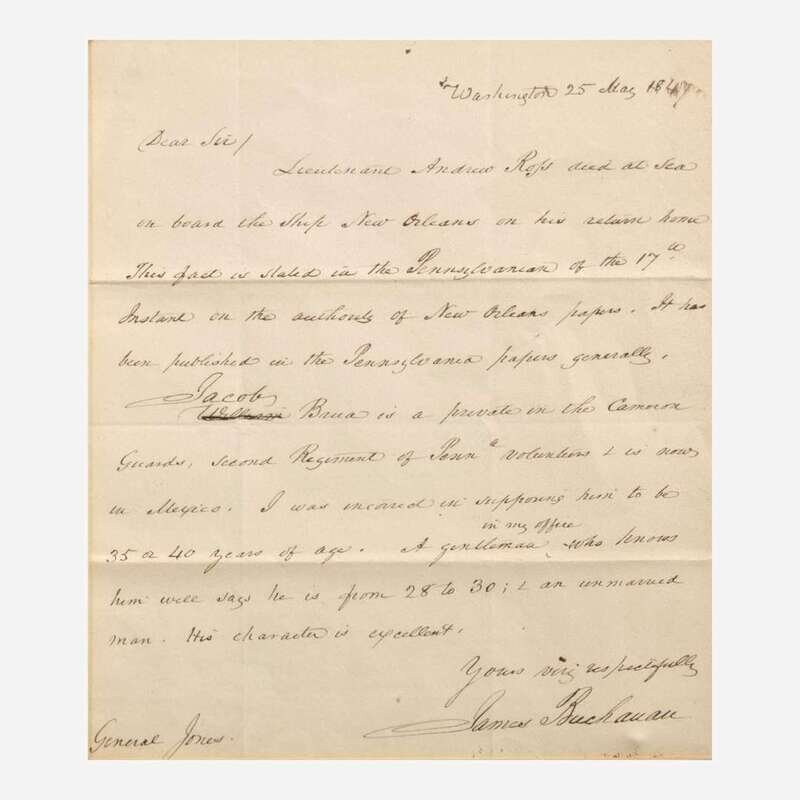 Washington 25 May 1847
Dear Sir/
Lieutenant Andrew Ross died at Sea
on board the Ship New Orleans on his return home
This fact is stated in the Pennsylvanian of the 17th
Instant on the authority of New Orleans papers. It has
been published in the Pennsylvania papers generally.
Jacob
William Brua is a private in the Cameron
Guards, second Regiment of Penna volunteers & is now
in Mexico. I was incorred in supposing him to be
in my office
35 or 40 years of age. A gentleman who knows
him well says he is from 28 to 30; & an unmarried
man. His character is excellent.
Yours very respectfully
James Buchanan
General Jones.